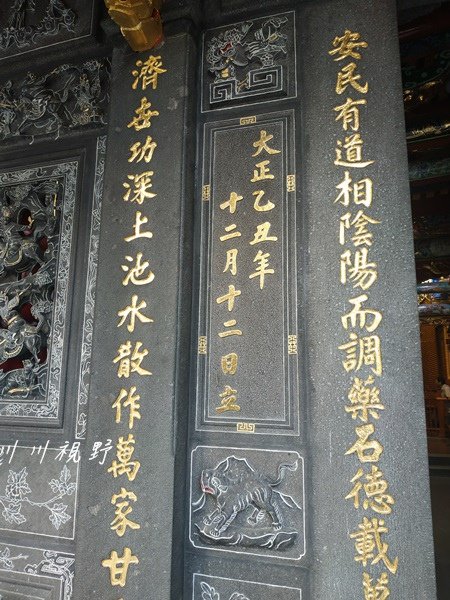 安民有道相陰陽而調藥石德載萬
大正乙丑年
十二月十二日立
濟世功深上池水散作萬家甘
川視野